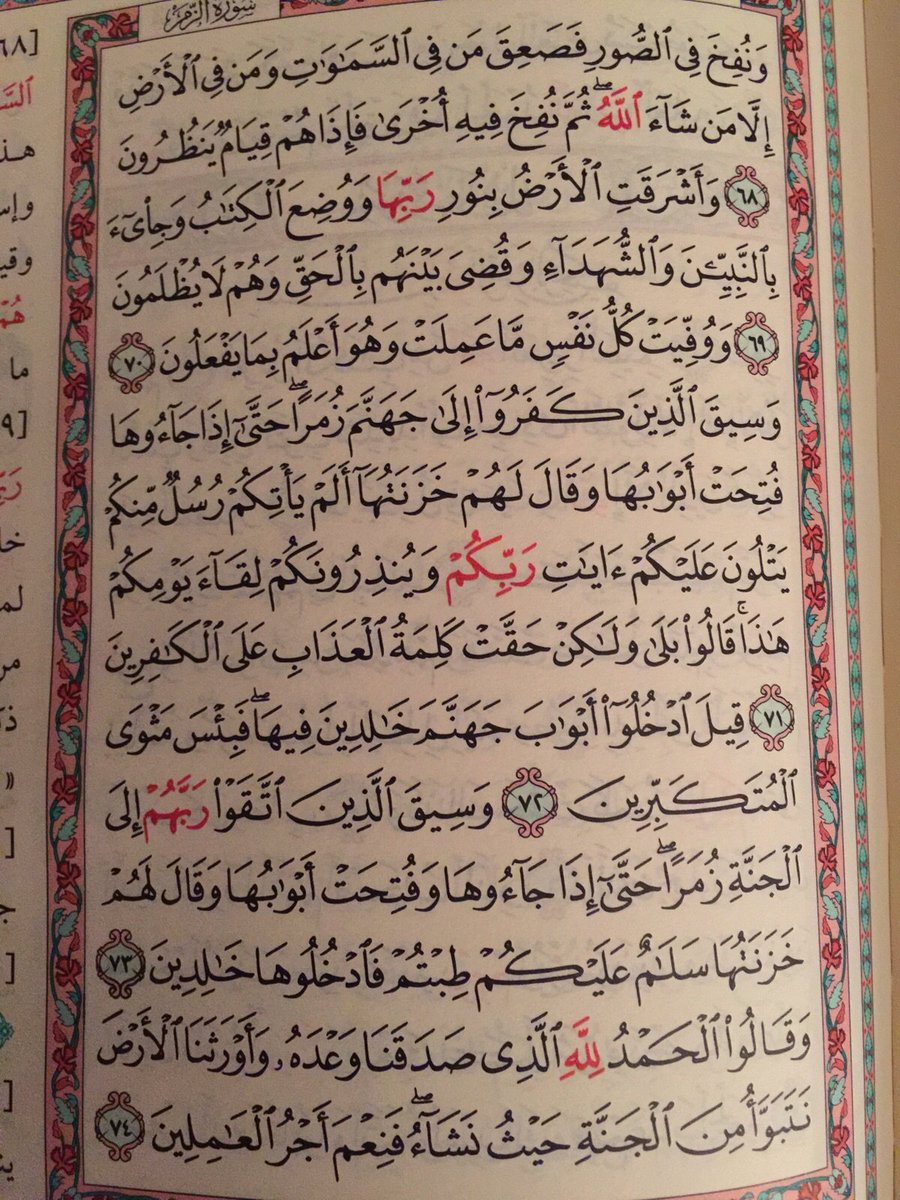 سورة الزمر
وَنُفِخَ فِى ٱلصُّورِ فَصَعِقَ مَن فِى ٱلسَّمَٰوَٰتِ وَمَن فِى ٱلْأَرْضِ
إِلَّا مَن شَآءَ ٱللَّهُ ۖ ثُمَّ نُفِخَ فِيهِ أُخْرَىٰ فَإِذَا هُمْ قِيَامٌ يَنظُرُونَ
٦٨ وَأَشْرَقَتِ ٱلْأَرْضُ بِنُورِ رَبِّهَا وَوُضِعَ ٱلْكِتَٰبُ وَجِا۟ىٓءَ
بِٱلنَّبِيِّـۧنَ وَٱلشُّهَدَآءِ وَقُضِىَ بَيْنَهُم بِٱلْحَقِّ وَهُمْ لَا يُظْلَمُونَ
٦٩ وَوُفِّيَتْ كُلُّ نَفْسٍ مَّا عَمِلَتْ وَهُوَ أَعْلَمُ بِمَا يَفْعَلُونَ ٧٠
وَسِيقَ ٱلَّذِينَ كَفَرُوٓا۟ إِلَىٰ جَهَنَّمَ زُمَرًا ۖ حَتَّىٰٓ إِذَا جَآءُوهَا
فُتِحَتْ أَبْوَٰبُهَا وَقَالَ لَهُمْ خَزَنَتُهَآ أَلَمْ يَأْتِكُمْ رُسُلٌ مِّنكُمْ
يَتْلُونَ عَلَيْكُمْ ءَايَٰتِ رَبِّكُمْ وَيُنذِرُونَكُمْ لِقَآءَ يَوْمِكُمْ
هَٰذَا ۚ قَالُوا۟ بَلَىٰ وَلَٰكِنْ حَقَّتْ كَلِمَةُ ٱلْعَذَابِ عَلَى ٱلْكَٰفِرِينَ
٧١ قِيلَ ٱدْخُلُوٓا۟ أَبْوَٰبَ جَهَنَّمَ خَٰلِدِينَ فِيهَا ۖ فَبِئْسَ مَثْوَى
ٱلْمُتَكَبِّرِينَ ٧٢ وَسِيقَ ٱلَّذِينَ ٱتَّقَوْا۟ رَبَّهُمْ إِلَى
ٱلْجَنَّةِ زُمَرًا ۖ حَتَّىٰٓ إِذَا جَآءُوهَا وَفُتِحَتْ أَبْوَٰبُهَا وَقَالَ لَهُمْ
خَزَنَتُهَا سَلَٰمٌ عَلَيْكُمْ طِبْتُمْ فَٱدْخُلُوهَا خَٰلِدِينَ ٧٣
وَقَالُوا۟ ٱلْحَمْدُ لِلَّهِ ٱلَّذِى صَدَقَنَا وَعْدَهُۥ وَأَوْرَثَنَا ٱلْأَرْضَ
نَتَبَوَّأُ مِنَ ٱلْجَنَّةِ حَيْثُ نَشَآءُ ۖ فَنِعْمَ أَجْرُ ٱلْعَٰمِلِينَ ٧٤